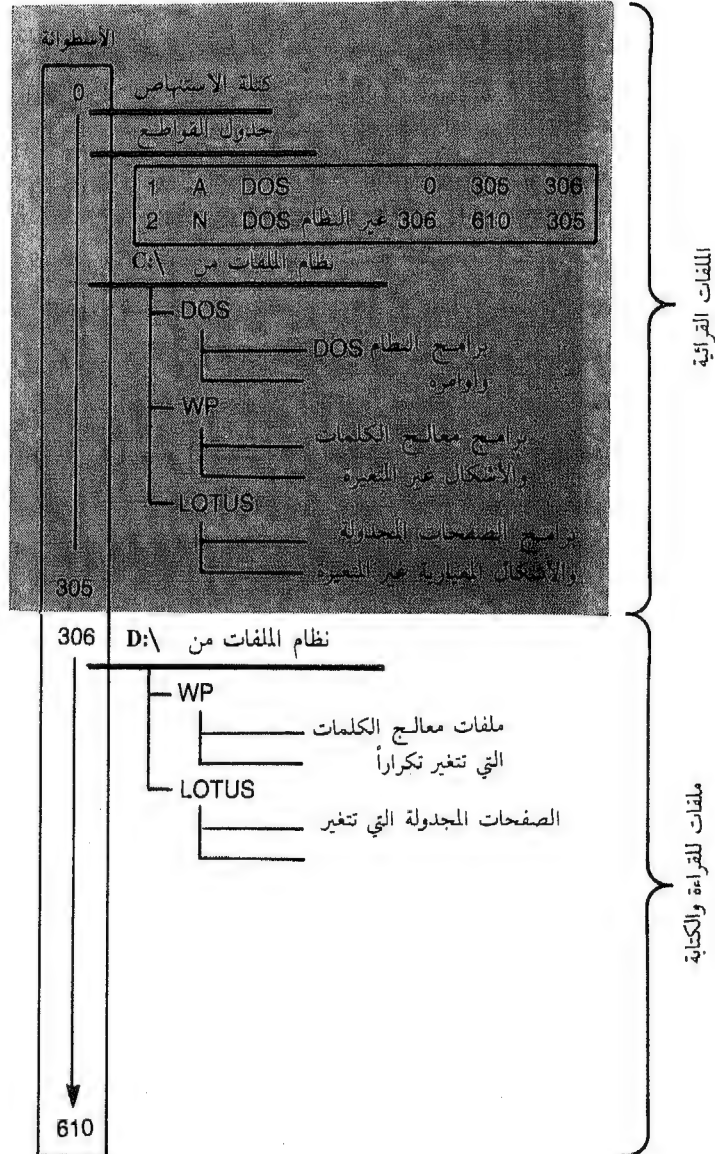 الأسطوانة
0
كتلة الاستنهاض
جدول القواطع
1 A DOS 0 306 306
2 N DOS غير النظام 306 610 305
نظام الملفات من C:\
DOS
برامج النظام DOS
وأوامره
WP
برامج معالج الكلمات
والأشكال غير المتغيرة
LOTUS
برامج الصفحات المجدولة
والأشكال المعيارية غير المتغيرة
305
الملفات القرائية
306
نظام الملفات من D:\
WP
ملفات معالج الكلمات
التي تتغير تكراراً
LOTUS
الصفحات المجدولة التي تتغير
610
ملفات للقراءة والكتابة